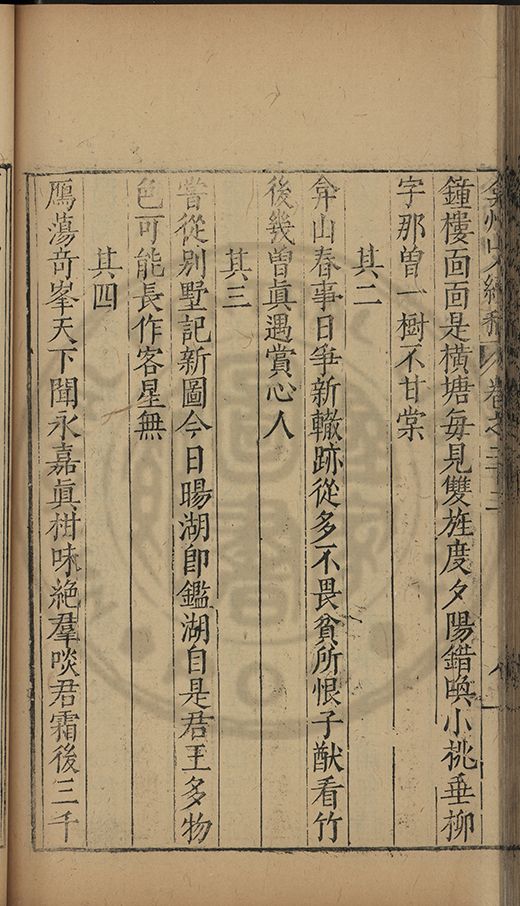 弇州山人續稿 卷之二十三 八
鐘樓面面是橫塘每見雙旌度夕陽錯喚小桃垂柳
字那曾一樹不甘棠
其二
弇山春事日爭新轍跡從多不畏貧所恨子猷看竹
後幾曾眞遇賞心人
其三
嘗從別墅記新圖今日暘湖卽鑑湖自是君王多物
色可能長作客星無
其四
鴈蕩奇峯天下聞永嘉眞柑味絶羣啖君霜後三千